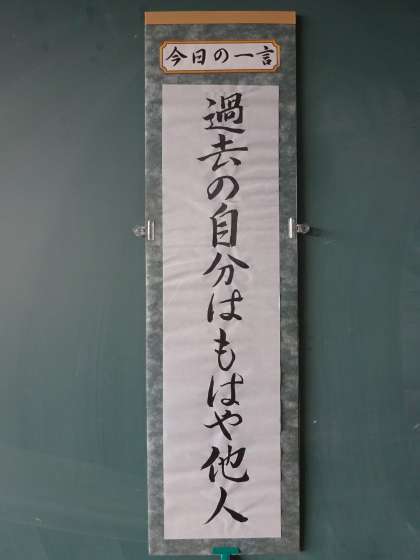 今日の一言
過去の自分はもはや他人